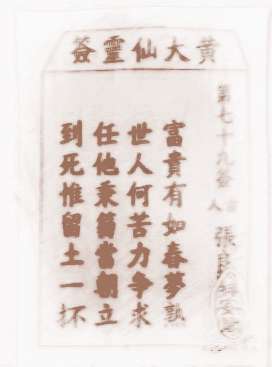 黄大仙靈簽
第七十九簽
古人
張良
富貴有如春夢熟
世人何苦力争求
任他秉笏當朝立
到死惟留土一抔